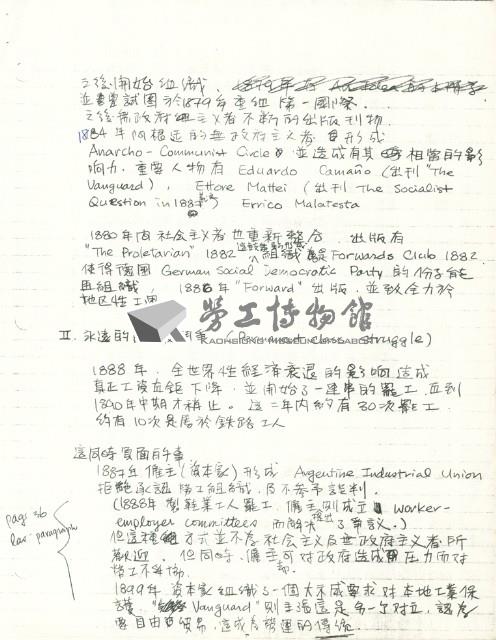 之後開始組織.
並嘗試圖於1879年重組第一國際.
之後無政府主義者不斷的出版刊物.
1884年阿根廷的無政府主義者形成
Anarcho-Communist Circle 並造成有其相當的影
响力, 重要人物有 Eduardo Camaño (出刊 "The
Vanguard), Ettore Mattei (出刊 The Socialist
Question in 188 ) Errico Malatesta
1880年內社會主義者也重新整合. 出版有
"The Proletarian" 1882 組織 Forwards Club 1882.
使得德國 German Social Democratic Party 的份子能
再組織, 188 年 "Forward" 出版, 並致全力於
地區性工
勞工博物館
KAOHSIUNG MUSEUM OF LABOR
II. 永遠的 (Permanent class struggle)
1888年, 全世界性經濟衰退的影响造成
真正工資立鉅下降, 並開始了一連串的罷工, 直到
1890年中期才稱止. 這二年內約有30次罷工.
約有10次是屬於鐵路工人
這同時資面的事
1887年僱主(資本家)形成 Argentine Industrial Union
拒絕承認勞工組織, 及不參予談判.
(1888年製鞋業工人罷工, 僱主則成立 worker-
employer committees 而解決了爭議.)
但這種方式並不为社会主义及無政府主义者所
歡迎. 但同時, 僱主可对政府造成压力而对
勞工不
1899年資本家組織了一個大示威要求对本地工業保
護. "Vanguard" 則主張這是 对立, 認為
自由貿易, 造成 的傳統.
page 56
law paragraph